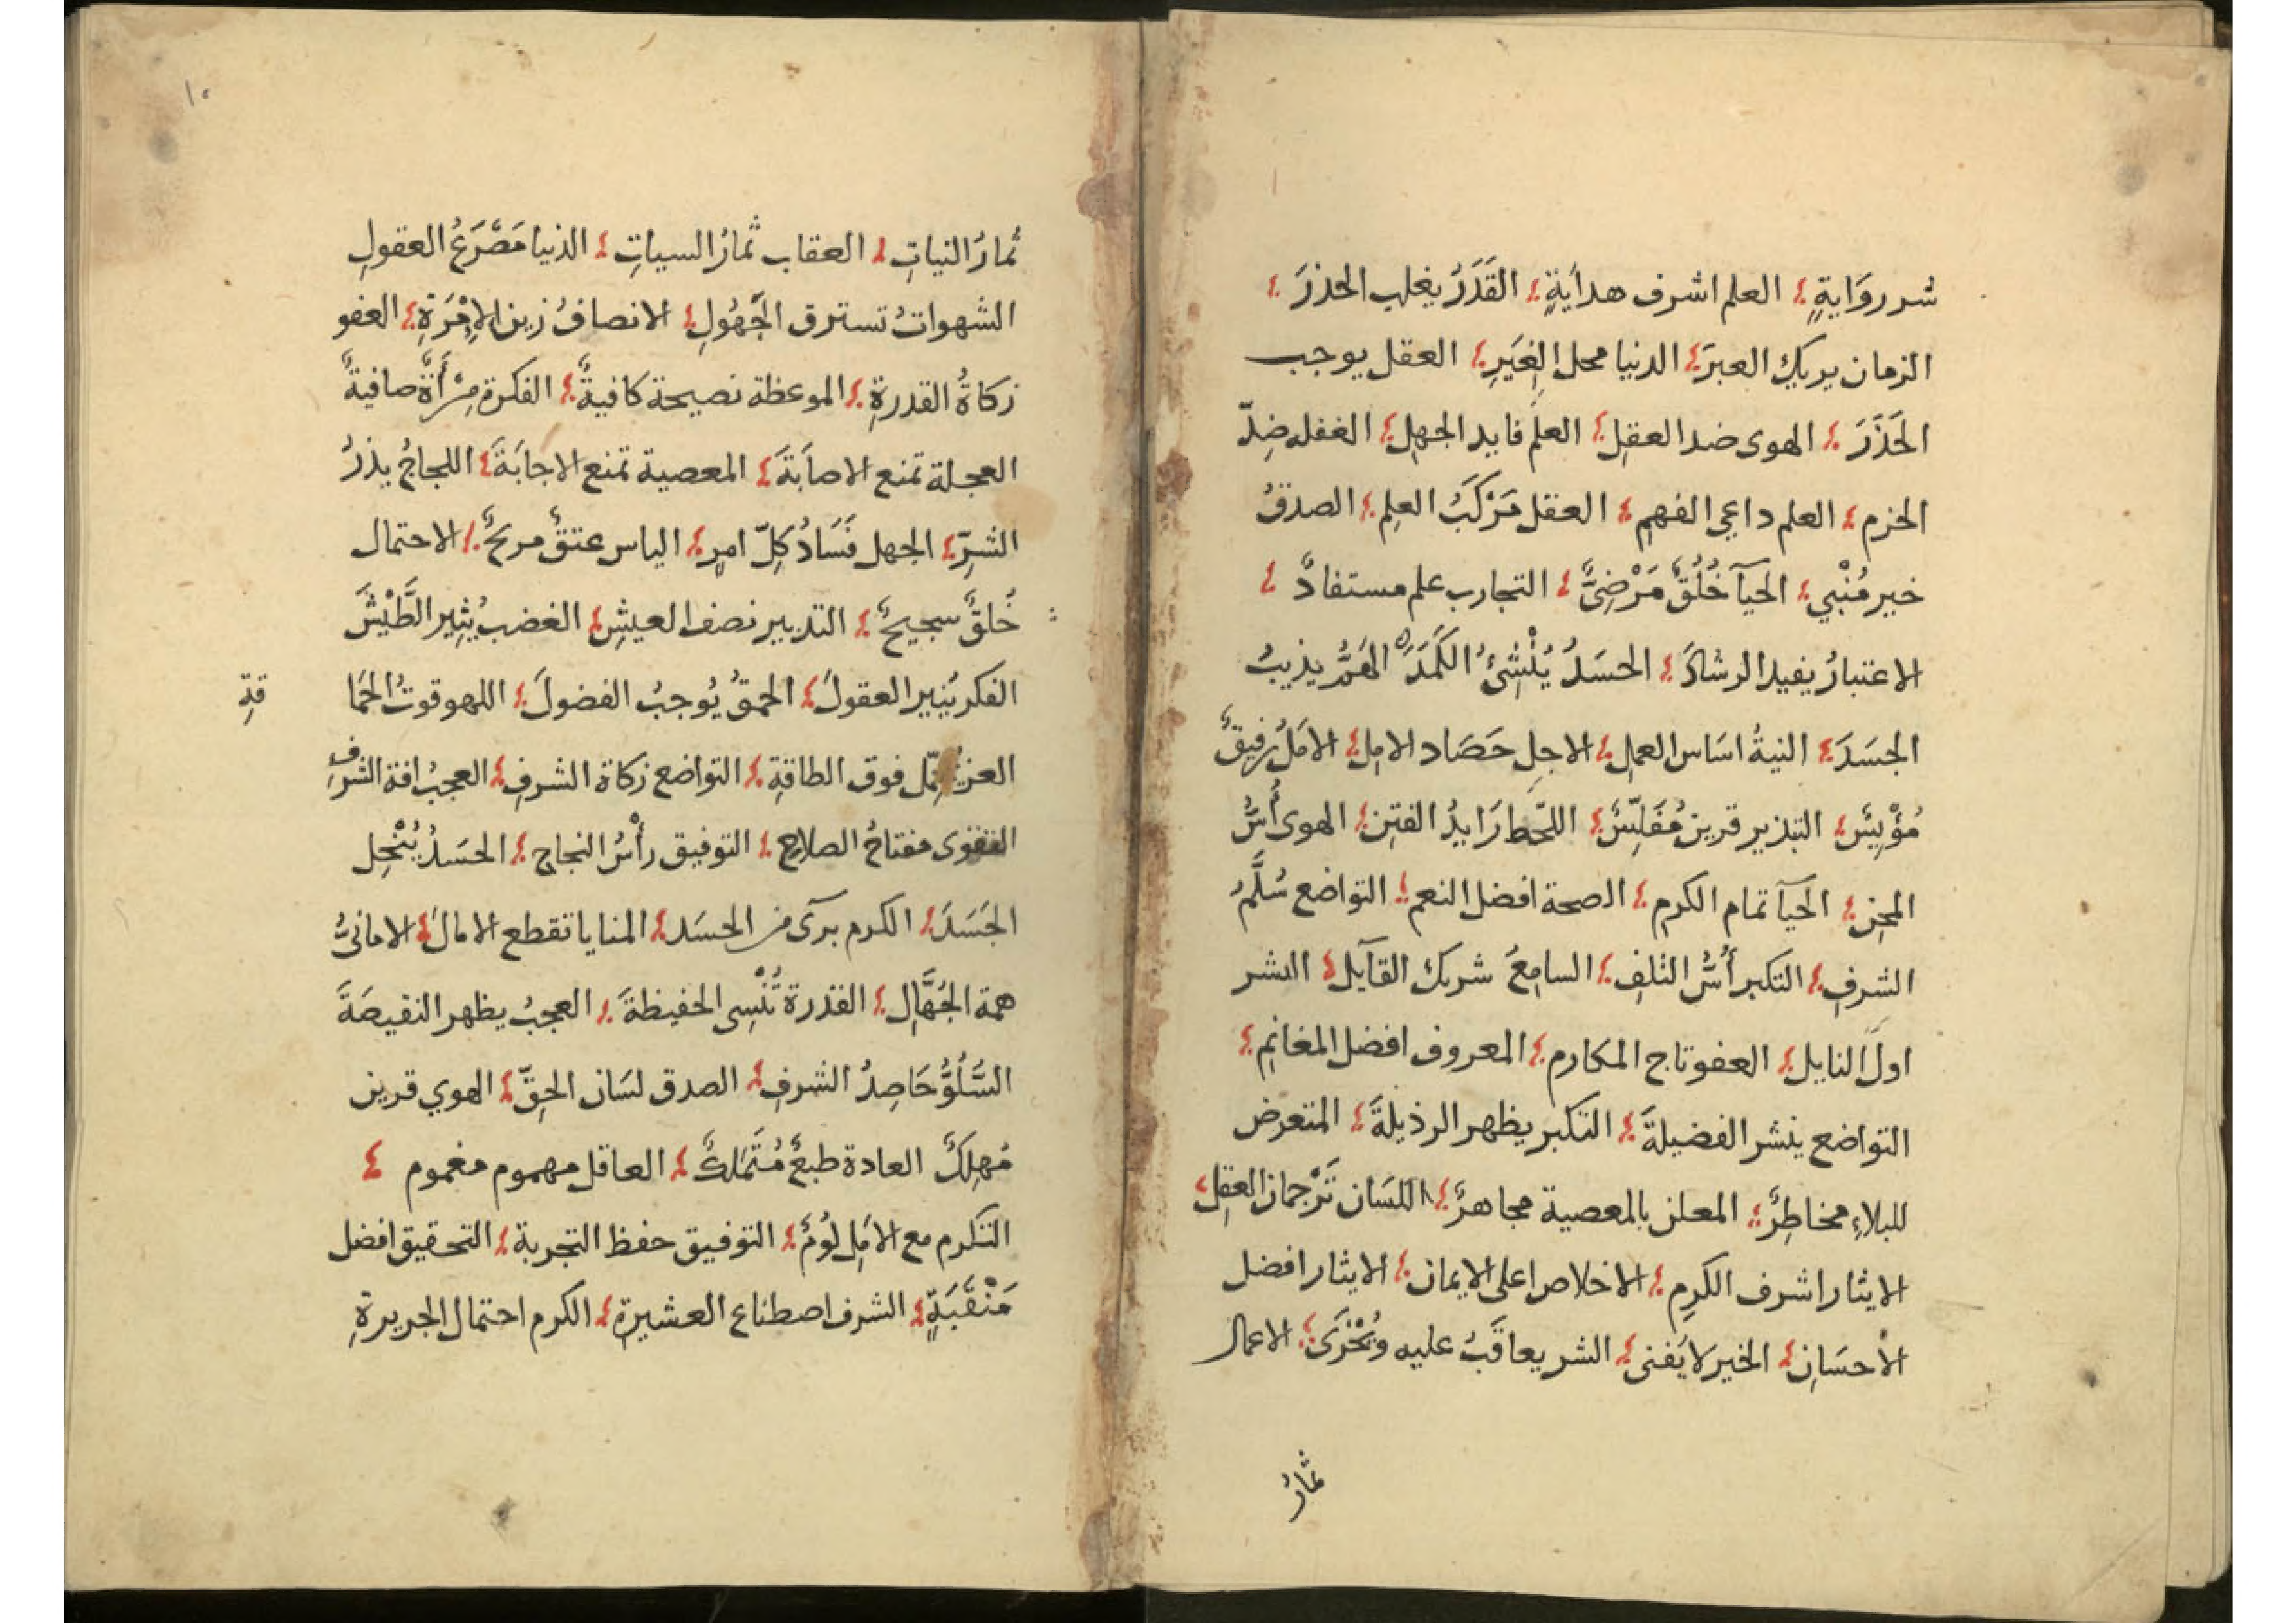 شر روَايةٍ العلم اشرف هدايَةٍ القَدَرُ يغلب الحذرَ
الزمان يريك العبرَ الدنيا محل الغِيَرِ العقل يوجب
الحَذَرَ الهوى ضد العقلِ العلم قايد الجهلِ الغفله ضِدّ
الحزم العلم داعي الفهمِ العقل مَرْكَبُ العلِم الصدقُ
خبر مُنْبي الحيآ خُلُقٌ مَرْضِىٌّ التجارب علم مستفادٌ
الاعتبارُ يفيد الرشادَ الحسَدُ يُنْشِئُ الكَمَدَ الهَمُّ يذيبُ
الجسَدَ النيةُ اسَاس العملِ الاجل حَصَاد الاملِ الامَلُ رفيقٌ
مُؤْيِسٌ التبذير قرين مُفَلِّسٌ اللّحظ رَايدُ الفتنِ الهوى أُسُّ
المحنِ الحيآ تمام الكرم الصحة افضل النعم التواضع سُلَّمُ
الشرفِ التكبر أُسُّ التلفِ السامعُ شريك القآيل البشر
اولُ النايل العفو تاج المكارم المعروف افضل المغانِمِ
التواضع ينشر الفضيلةَ التكبر يظهر الرذيلةَ المتعرض
للبلاءِ مخاطِرٌ المعلن بالمعصية مجاهرٌ اللسَان تَرْجمان العقلِ
الايثار اشرف الكرِم الاخلاص اعلى الايمان الايثار افضل
الاحسَانِ الخير لا يَفنى الشر يعاقَبُ عليه ويُخْزَى الاعمال
ثمارُ
١٠
ثمارُ النياتِ العقاب ثمارُ السياتِ الدنيا مَصْرَعُ العقولِ
الشهواتُ تسترق الجَهُولِ الانصافُ زين الإِمْرَةِ العفو
زكاةُ القدرةِ الموعظة نصيحة كافيةٌ الفكرة مِرْأَةٌ صافيةٌ
العجلة تمنع الاصَابَةَ المعصية تمنع الاجابَةَ اللجاجُ يذرُ
الشرِّ الجهل فَسَادُ كلِّ امرٍ الياس عتقٌ مريحٌ الاحتمال
خُلقٌ سجيحٌ التدبير نصف العيشِ الغضبُ يُثِير الطَّيْشَ
الفكر يُنير العقولَ الحمقُ يُوجبُ الفضولَ اللهو قوتُ الحمَا
قةِ
فوق الطاقةِ التواضع زكاة الشرفِ العجبُ افة الشرفِ
التقوى مفتاحُ الصلاحِ التوفيق رأْسُ النجاحِ الحسَدُ يُنْحِل
الجَسَدَ الكرم برىٓ من الحسَد المنايا تقطع الامالَ الامانىُّ
همة الجُهَّالِ القدرة تُنْسِى الحفيظةَ العجبُ يظهر النقيصَةَ
السُّلُوُّ حَاصِدُ الشرفِ الصدق لسَان الحقِّ الهوي قرين
مُهلِكٌ العادة طبعٌ مُتَملكٌ العاقل مهموم مغموم
التكرم مع الامَلِ لُومٌ التوفيق حفظ التجربة التحقيق افضل
مَنْقَبَةٍ الشرف اصطناع العشيرةِ الكرم احتمال الجريرةِ